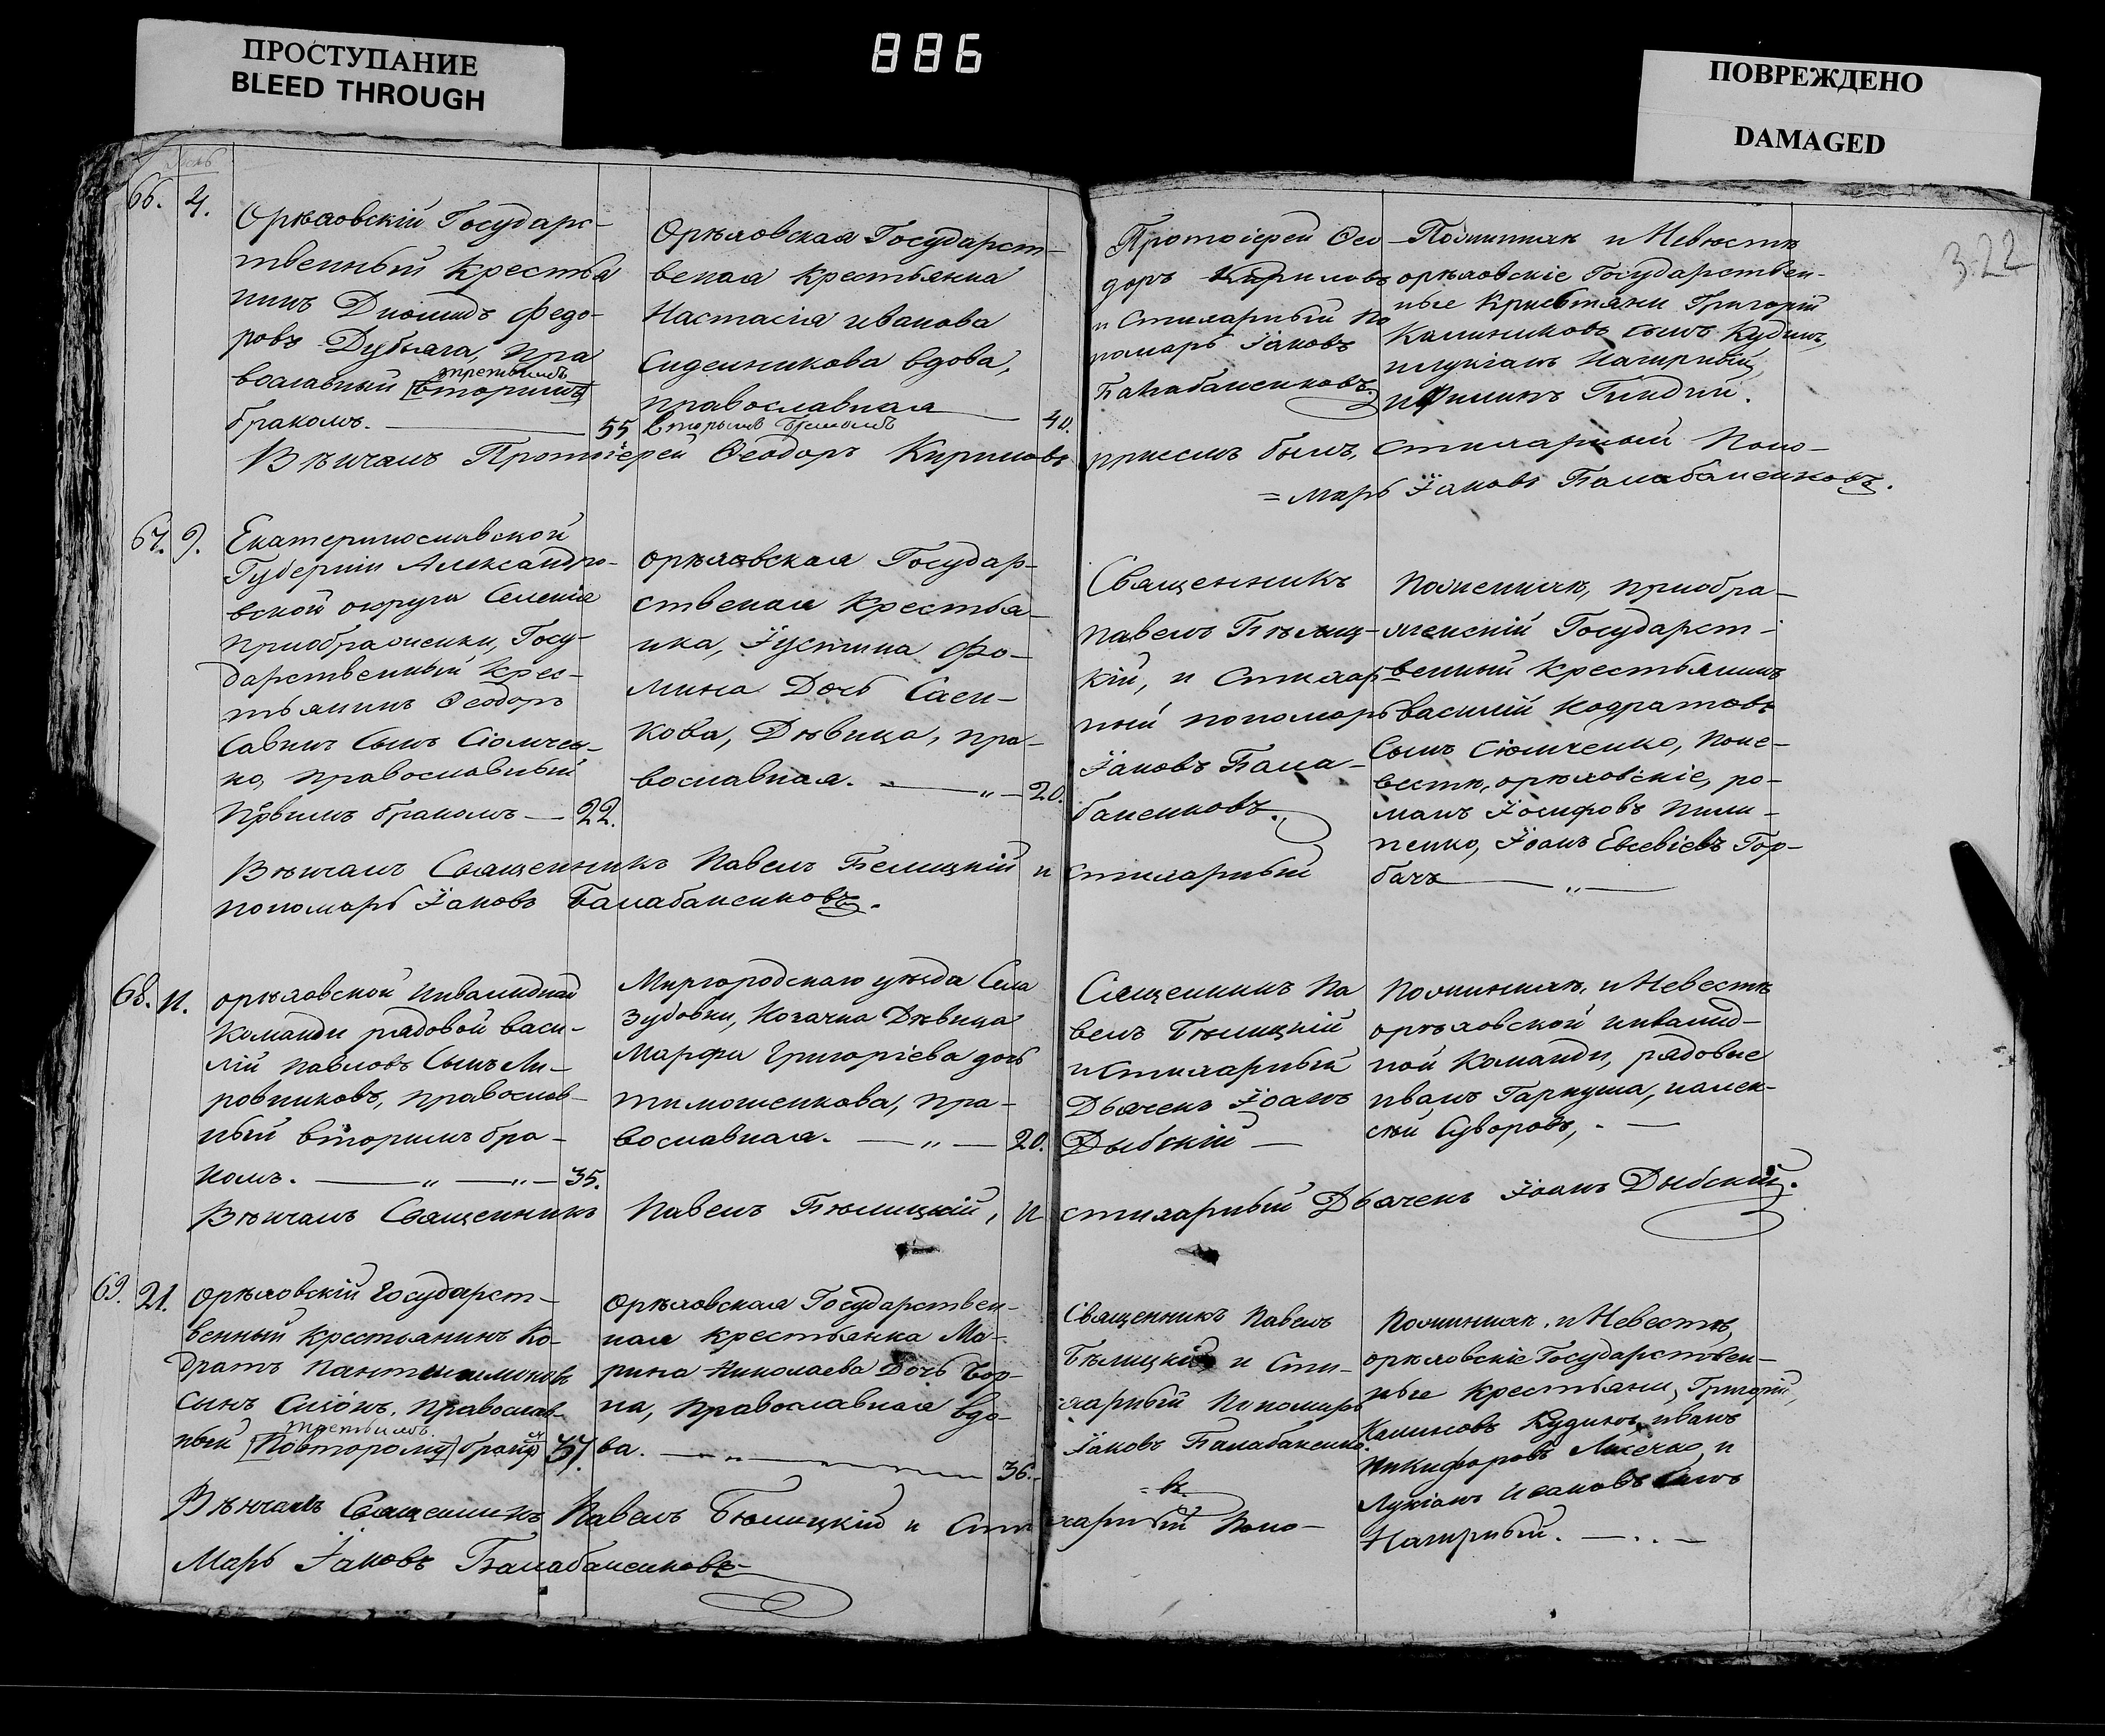 ПРОСТУПАНИЕ
BLEED THROUGH
886
ПОВРЕЖДЕНО
DAMAGED
322
66. 4.
Орѣховскій Государс-
твенный Крестья
нинъ Диомидъ Федо-
ровъ Дубяга, Пра
вославный [вторимъ] третьимъ
бракомъ. 55
Орѣховская Государст-
веная крестьянка
Настасія иванова
вдова,
православная
вторымъ бракомъ 40.
Протоіерей Ѳео-
доръ Кириловъ
и Стихарный По
номарь Іаковъ
Балабаненковъ.
По женихѣ и Невѣстѣ
орѣховскіе Государствен-
ные Крестьяни Григорій
Калиниковъ сынъ Кудинъ,
Нагирный,
и
Вѣнчалъ Протоіерей Ѳеодоръ Кириловъ
присемъ былъ, стихарный Поно-
=марь Іаковъ Балабаненковъ.
67. 9.
Екатеринославской
Губерніи Александро-
вской округа Селенія
приображенки, Госу-
дарственный Крес-
тьянинъ Ѳеодоръ
Савинъ Сынъ Сіомчен-
ко, православный
Первимъ бракомъ — 22.
орѣховская Государ-
ственая Крестья-
нка, Іустина Фо-
мина Дочь Саен-
кова, Дѣвица, пра-
вославная. — " — 20.
Священникъ
павелъ Бѣлиц-
кій, и Стихар
ный пономарь
Іаковъ Бала-
баненковъ.
По женихѣ, приобра-
женскій Государст-
венный крестьянинъ
василій Кодратовъ
Сынъ Сіомченко, Поне-
вести, орѣховскіе, ро-
манъ Іосифовъ Пили-
пенко, Іоанъ Евсевіевъ Гор-
бачъ — " —
Вѣнчалъ Священникъ Павелъ Белицкій и Стихарный
пономарь Іаковъ Балабаненковъ.
68. 11.
орѣховской инвалидной
команди рядовой васи-
лій павловъ Сынъ Ми-
ровниковъ, православ-
ный вторимъ бра-
комъ. — " — " — 35.
Миргородскаго уѣзда Села
Зубовки, козачка Дѣвица
Марфа Григоріева дочь
тимошенкова, пра-
вославная. — " — 20.
Священникъ Па
велъ Бѣлицкій
и Стихарный
Дьячекъ Іоанъ
Дыбскій —
По женихѣ, и Невестѣ
орѣховской инвалид-
ной команди, рядовые
иванъ Гаркуша, иалек-
сѣй Суворовъ, —
Вѣнчалъ Священникъ Павелъ Бѣлицкій, и
стихарный Дьячекъ Іоанъ Дыбскій.
69. 21.
орѣховскій государст-
венный крестьянинъ Ко-
дратъ Пантелимоновъ
сынъ, православ-
ный [Повторому] третьимъ бракомъ 37.
орѣховская Государствен-
ная крестьянка Ма-
рина Николаева Дочь Бор-
на, православная вдо-
ва. 36.
Священникъ Павелъ
Бѣлицкій и Сти-
харный Пономарь
Іаковъ Балабаненко
=въ.
По женихѣ, и Невестѣ,
орѣховскіе Государствен-
ные крестьяни, Григорій,
Калиновъ Кудинъ, иванъ
Никифоровъ Лисечко, и
Лукіанъ Исаковъ сынъ
Нагирный. — . . —
Вѣнчалъ Священникъ Павелъ Бѣлицкій и Стихарный Поно-
марь Іаковъ Балабаненковъ